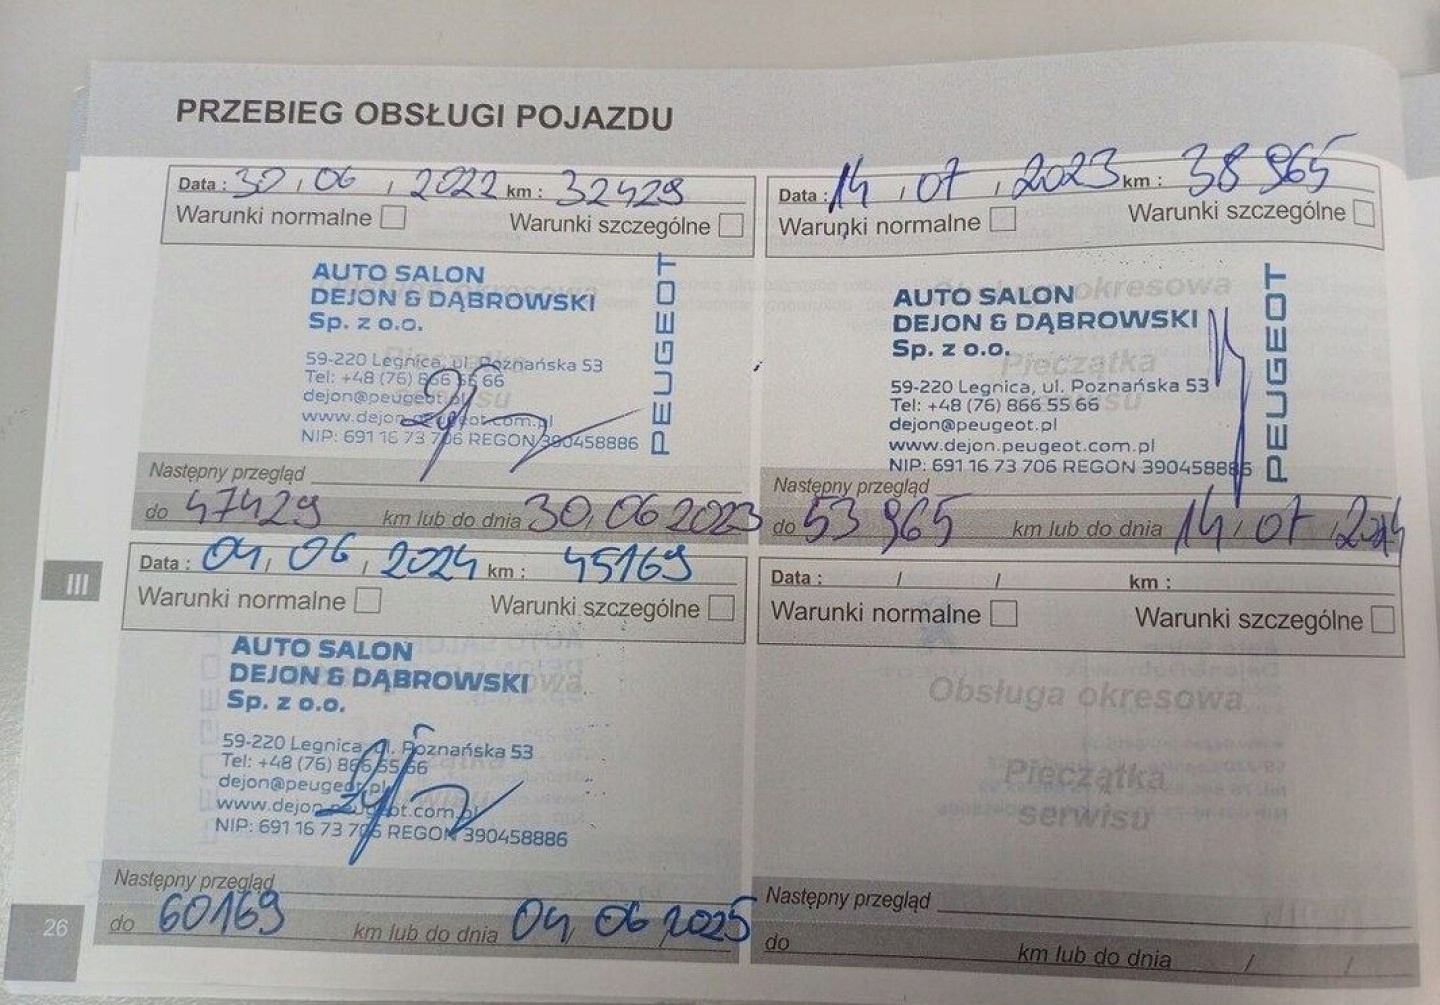 PRZEBIEG OBSŁUGI POJAZDU
Data : 30 / 06 / 2022 km : 32429
Warunki normalne Warunki szczególne
AUTO SALON
DEJON & DĄBROWSKI
Sp. z o.o.
59-220 Legnica, ul. Poznańska 53
Tel: +48 (76) 866 55 66
dejon@peugeot.pl
www.dejon.peugeot.com.pl
NIP: 691 16 73 706 REGON 390458886
PEUGEOT
Następny przegląd
do 47429 km lub do dnia 30, 06 2023
Data : 14 / 07 / 2023 km : 38 965
Warunki normalne Warunki szczególne
Obsługa okresowa
Pieczątka
AUTO SALON
DEJON & DĄBROWSKI
Sp. z o.o.
59-220 Legnica, ul. Poznańska 53
Tel: +48 (76) 866 55 66
dejon@peugeot.pl
www.dejon.peugeot.com.pl
NIP: 691 16 73 706 REGON 390458886
PEUGEOT
Następny przegląd
do 53 965 km lub do dnia 14 / 07 / 2024
III
Data : 04 / 06 / 2024 km : 45169
Warunki normalne Warunki szczególne
AUTO SALON
DEJON & DĄBROWSKI
Sp. z o.o.
59-220 Legnica, ul. Poznańska 53
Tel: +48 (76) 866 55 66
dejon@peugeot.pl
www.dejon.peugeot.com.pl
NIP: 691 16 73 706 REGON 390458886
Następny przegląd
do 60169 km lub do dnia 04, 06 2025
Data : / / km :
Warunki normalne Warunki szczególne
Obsługa okresowa
Pieczątka
serwisu
Następny przegląd
do km lub do dnia / /
26